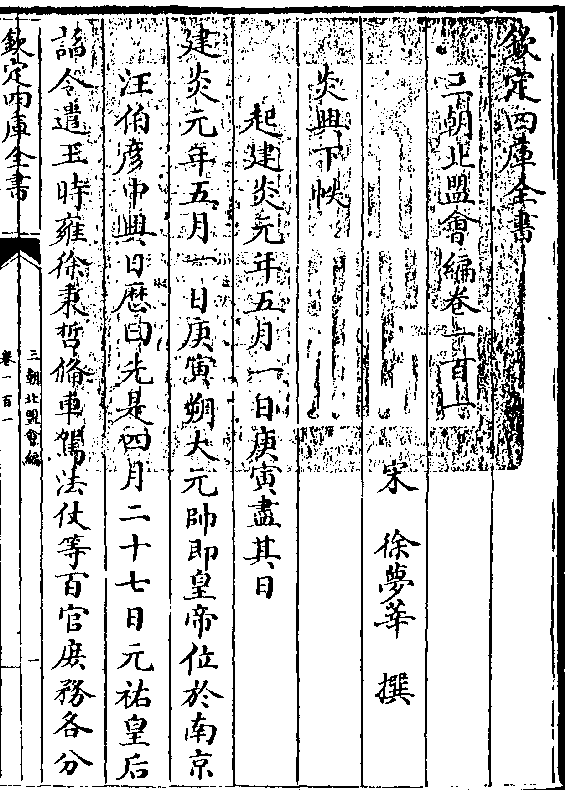 欽定四庫全書
三朝北盟會編卷一百一
宋　徐夢莘　撰
炎興下帙
起建炎元年五月一日庚寅盡其日
建炎元年五月一日庚寅朔大元帥即皇帝位於南京
汪伯彦中興日厯曰先是四月二十七日元祐皇后
詔令遣王時雍徐秉哲脩車駕法仗等百官庶務各分
欽定四庫全書
三朝北盟會編
卷一百一
一